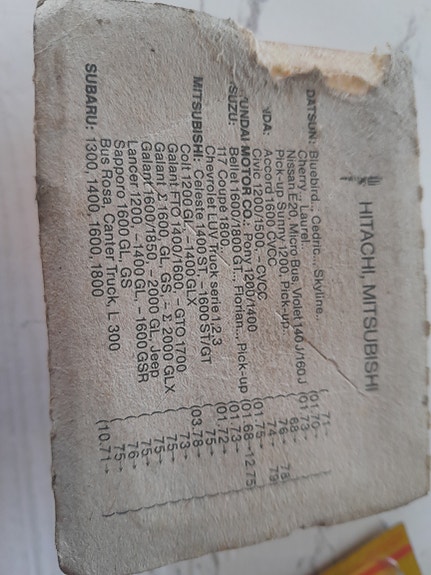 HITACHI, MITSUBISHI
DATSUN: Bluebird.., Cedric.., Skyline.. 71→
Cherry.., Laurel.. (01.70→
Nissan E20, Micro Bus, Violet 140 J/160 J (01.73→
Pick-up, Sunny, 1200, Pick-up.. 68→
NDA: Accord 1600 CVCC 76→ 78
Civic 1200/1500, -CVCC 74→ 79
YUNDAI MOTOR CO.: Pony 1200/1400 (01.75→
ISUZU: Bellet 1600/1800, GT.., Florian.., Pick-up (01.68→12.75
117 Coupé 1800 (01.73→
Chevrolet LUV Truck serie 1,2,3 (01.72→
MITSUBISHI: Celeste 1400 ST, -1600 ST/GT 75→
Colt 1200 GL, -1400 GLX (03.78→
Galant FTO 1400/1600, -GTO 1700 73→
Galant Σ 1600 GL, GS, -Σ 2000 GLX 75→
Galant 1600/1850, -2000 GL, Jeep 75→
Lancer 1200, -1400 GL, -1600 GSR 75→
Sapporo 1600 GL, GS 76→
Bus Rosa, Canter Truck, L 300 75→
SUBARU: 1300,1400,1600,1800 (10.71→